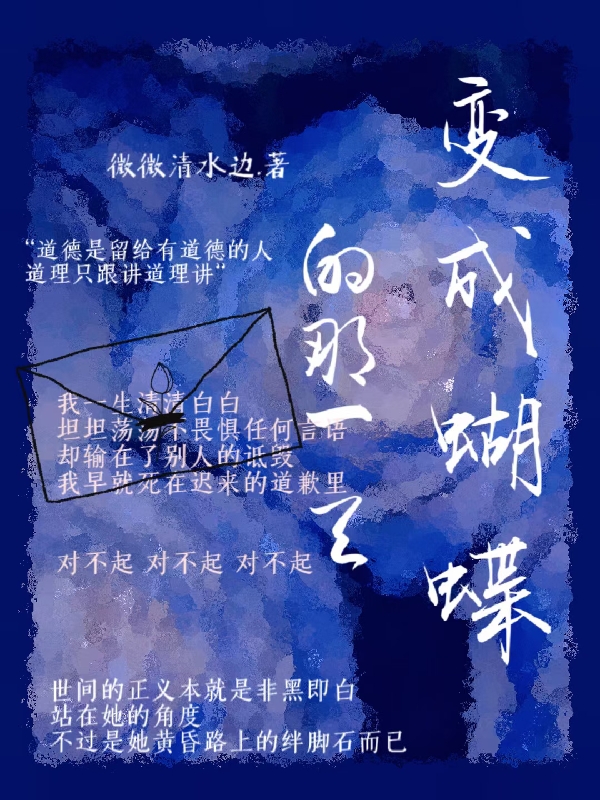 变成蝴蝶
的那一天
微微清水边.著
“道德是留给有道德的人
道理只跟讲道理讲“
我一生清清白白
坦坦荡荡不畏惧任何言语
却输在了别人的诋毁
我早就死在迟来的道歉里
对不起 对不起 对不起
世间的正义本就是非黑即白
站在她的角度
不过是她黄昏路上的绊脚石而已